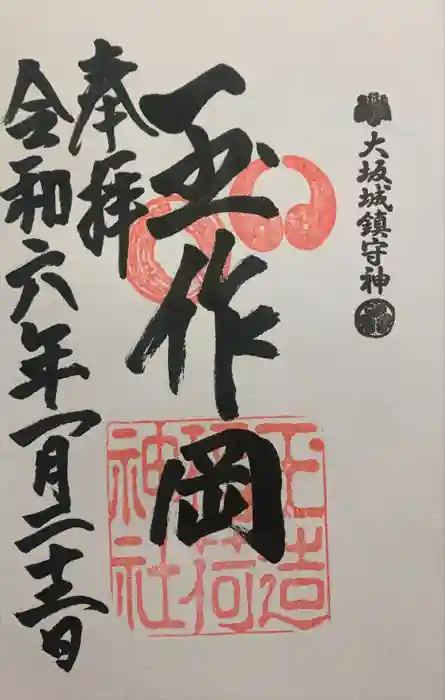 大坂城鎮守神
玉作岡
奉拝
令和六年一月二十三日
玉造
稲荷
神社